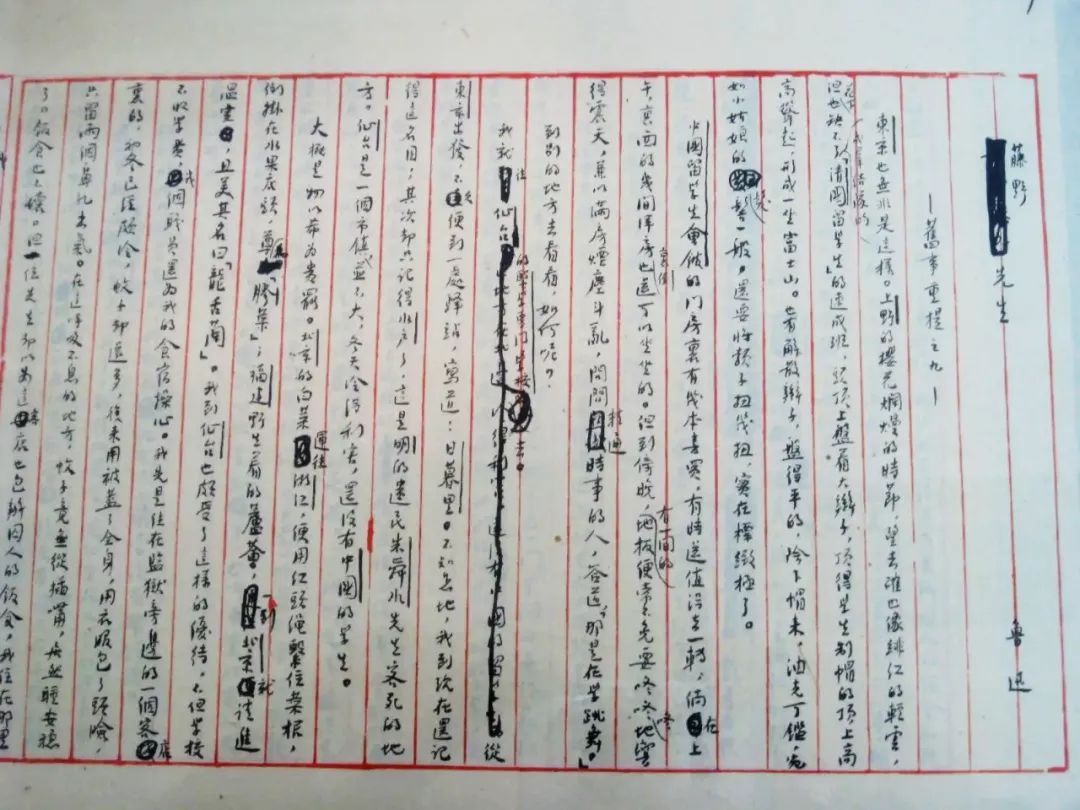 藤野先生
—舊事重提之九—
魯迅
東京也無非是這樣。上野的櫻花爛熳的時節,望去確也像緋紅的輕雲,
但花下也缺不了成羣結隊的「清國留學生」的速成班,頭頂上盤着大辮子,頂得學生制帽的頂上高
高聳起,形成一坐富士山。也有解散辮子,盤得平的,除下帽來,油光可鑑,宛
如小姑娘的髮髻一般,還要將頸子扭幾扭,實在標緻極了。
中國留學生會館的門房裏有幾本書買,有時還值得去一轉,倘在上
午,裏面的幾間洋房裏倒也還可以坐坐的。但到傍晚,有一間的地板便常不免要咚咚咚地響
得震天,兼以滿房煙塵斗亂,問問精通時事的人,答道,「那是在學跳舞。」
到別的地方去看看,如何呢?
我就往仙台的醫學專門學校去。從
東京出發,不久便到一處驛站,寫道:日暮里。不知怎地,我到現在還記
得這名目。其次卻只記得水戶了,這是明的遺民朱舜水先生客死的地
方。仙台是一個市鎮,並不大,冬天冷得利害,還沒有中國的學生。
大概是物以希爲貴罷。北京的白菜運往浙江,便用紅頭繩繫住菜根,
倒掛在水果店頭,尊爲「膠菜」;福建野生着的蘆薈,一到北京就請進
溫室,且美其名曰「龍舌蘭」。我到仙台也頗受了這樣的優待,不但學校
不收學費,幾個職員還爲我的食宿操心。我先是住在監獄旁邊的一個客店
裏的,初冬已經頗冷,蚊子卻還多,後來用被蓋了全身,用衣服包了頭臉,
只留兩個鼻孔出氣。在這呼吸不息的地方,蚊子竟無從插嘴,居然睡安穩
了。飯食也不壞。但一位先生卻以爲這客店也包辦囚人的飯食,我住在那里